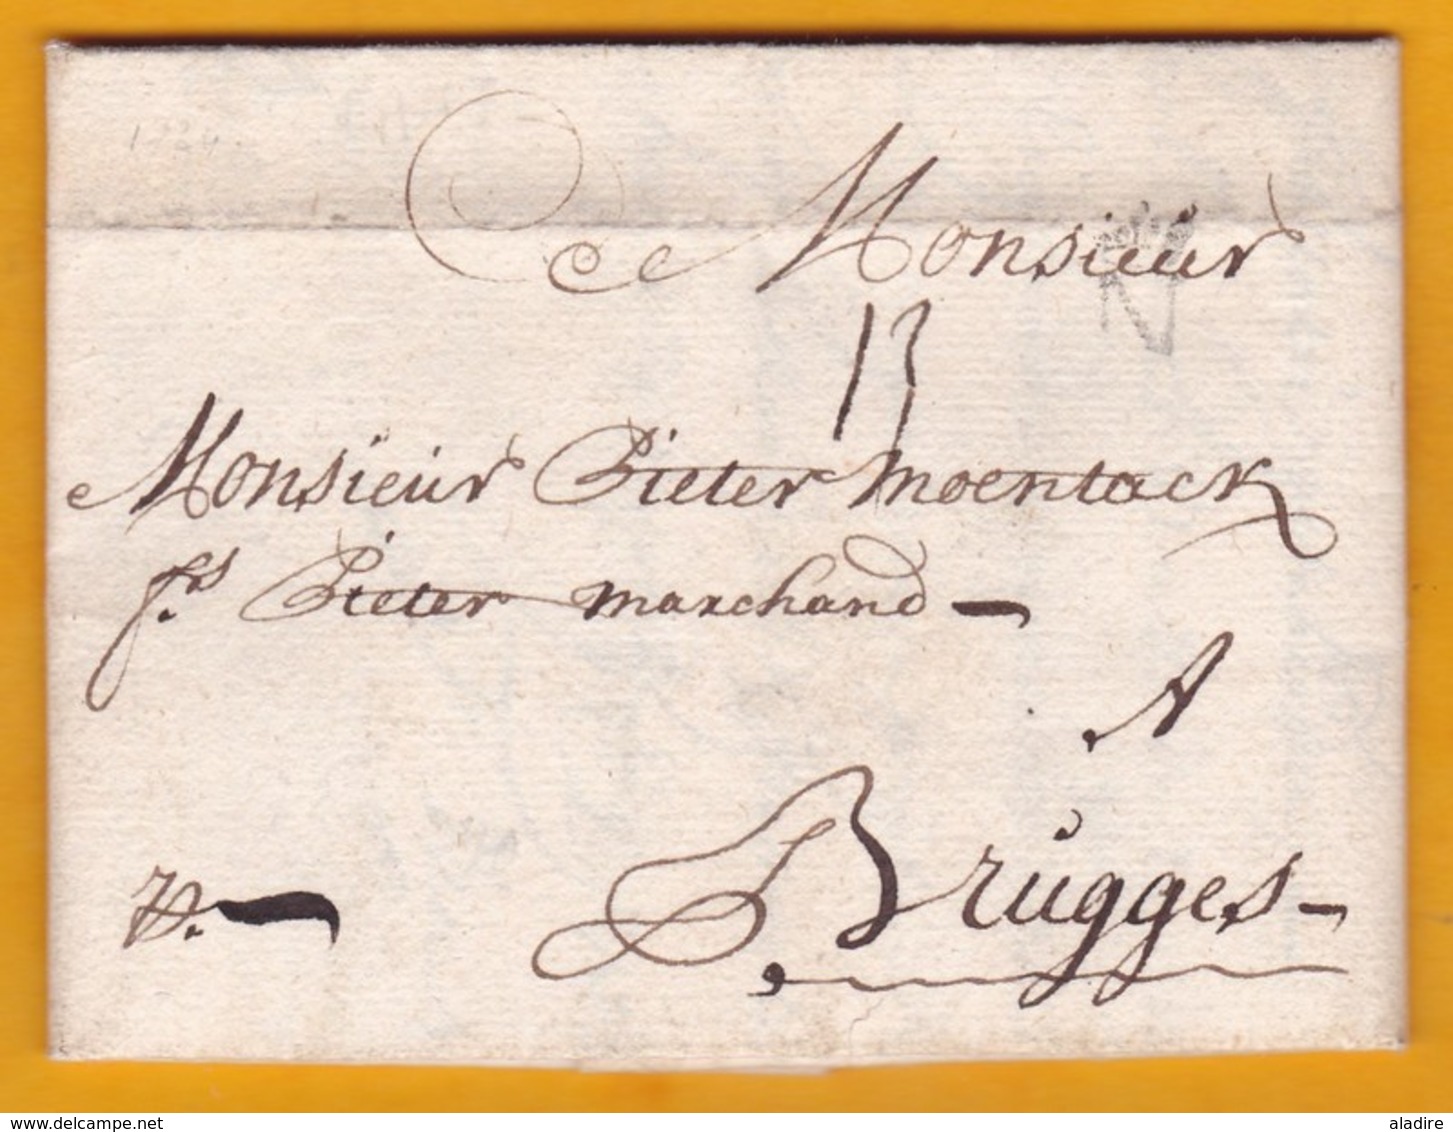 Monsieur
13
Monsieur Pieter Moentack
fs. Pieter marchand
A
Brugges
N
delcampe.net
aladire